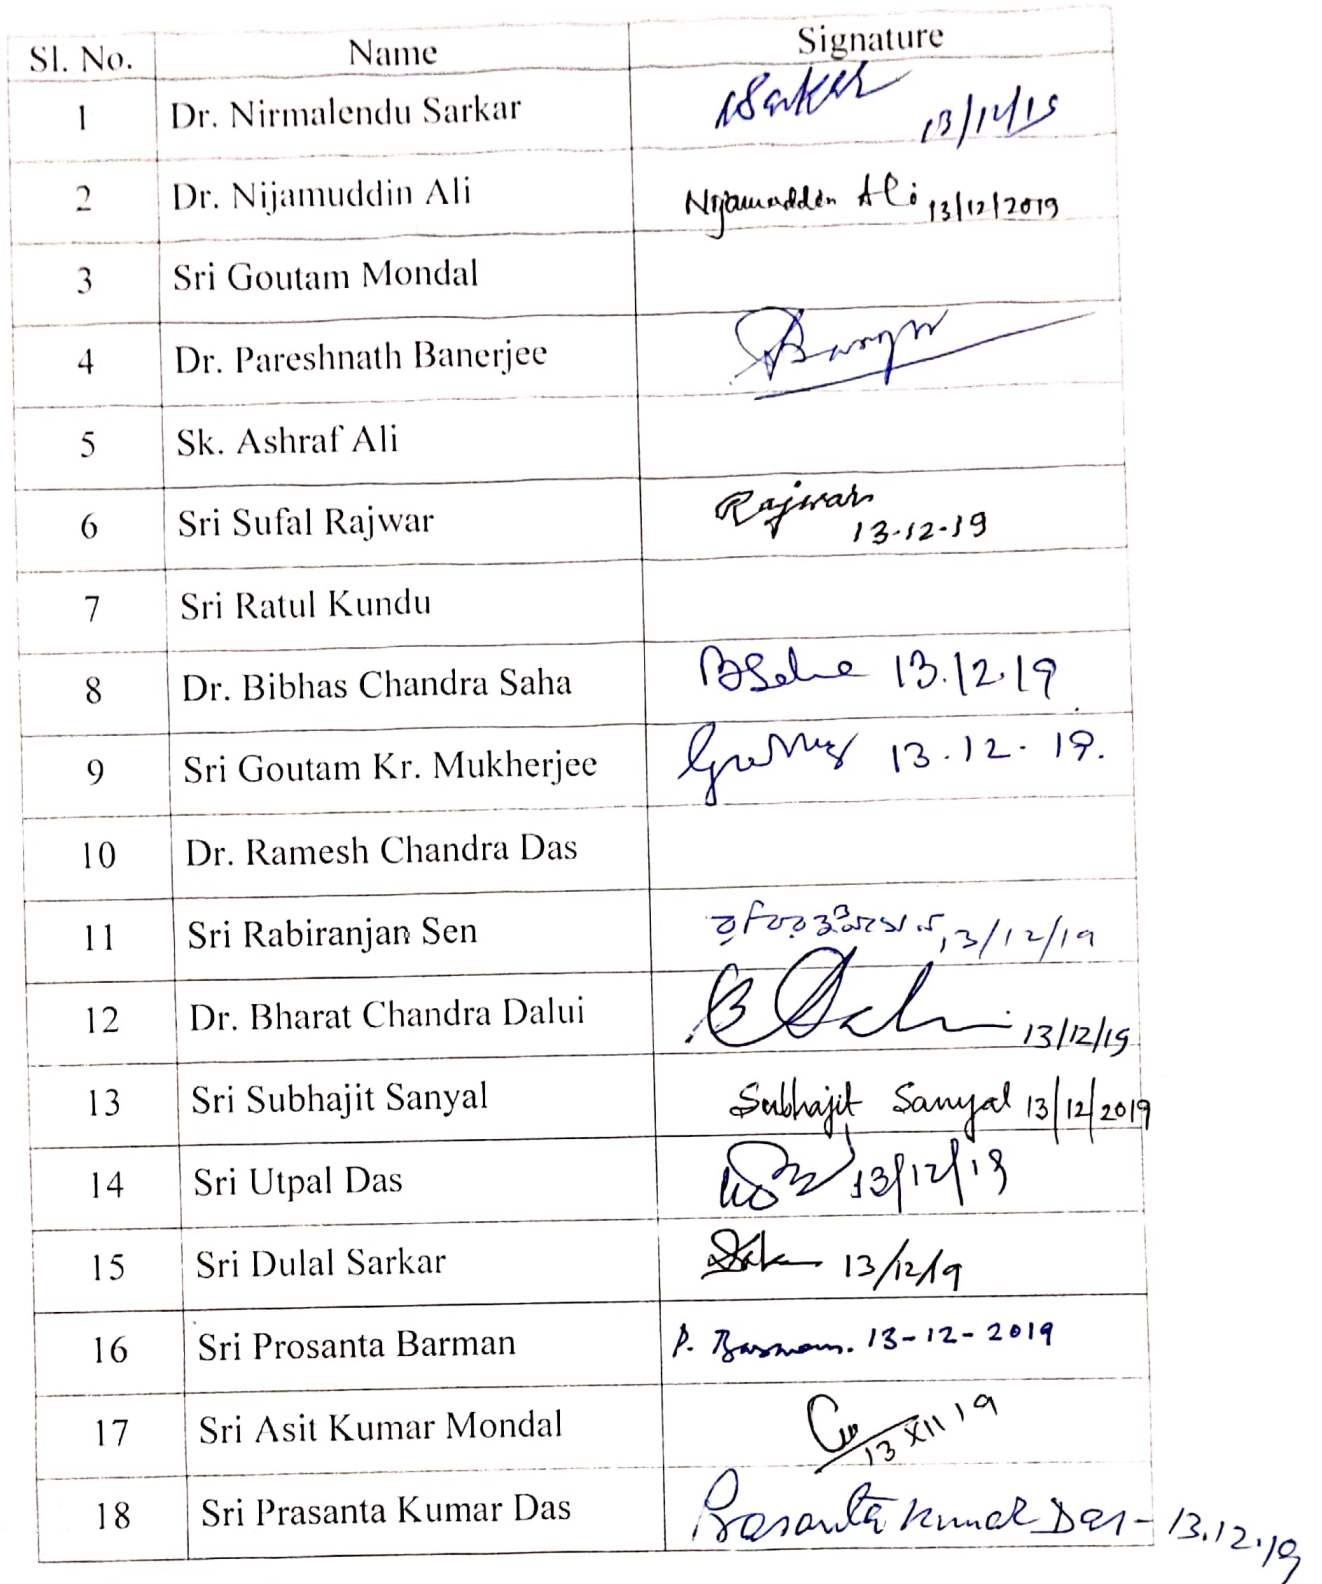 Sl. No. Name Signature
1 Dr. Nirmalendu Sarkar NSarkar 13/12/19
2 Dr. Nijamuddin Ali Nijamuddin Ali 13/12/2019
3 Sri Goutam Mondal
4 Dr. Pareshnath Banerjee
5 Sk. Ashraf Ali
6 Sri Sufal Rajwar Rajwar
13-12-19
7 Sri Ratul Kundu
8 Dr. Bibhas Chandra Saha BSaha 13.12.19
9 Sri Goutam Kr. Mukherjee 13.12.19.
10 Dr. Ramesh Chandra Das
11 Sri Rabiranjan Sen 13/12/19
12 Dr. Bharat Chandra Dalui 13/12/19
13 Sri Subhajit Sanyal Subhajit Sanyal 13/12/2019
14 Sri Utpal Das 13/12/19
15 Sri Dulal Sarkar 13/12/19
16 Sri Prosanta Barman P. Barman. 13-12-2019
17 Sri Asit Kumar Mondal 13 XII 19
18 Sri Prasanta Kumar Das Prasanta Kumar Das - 13.12.19